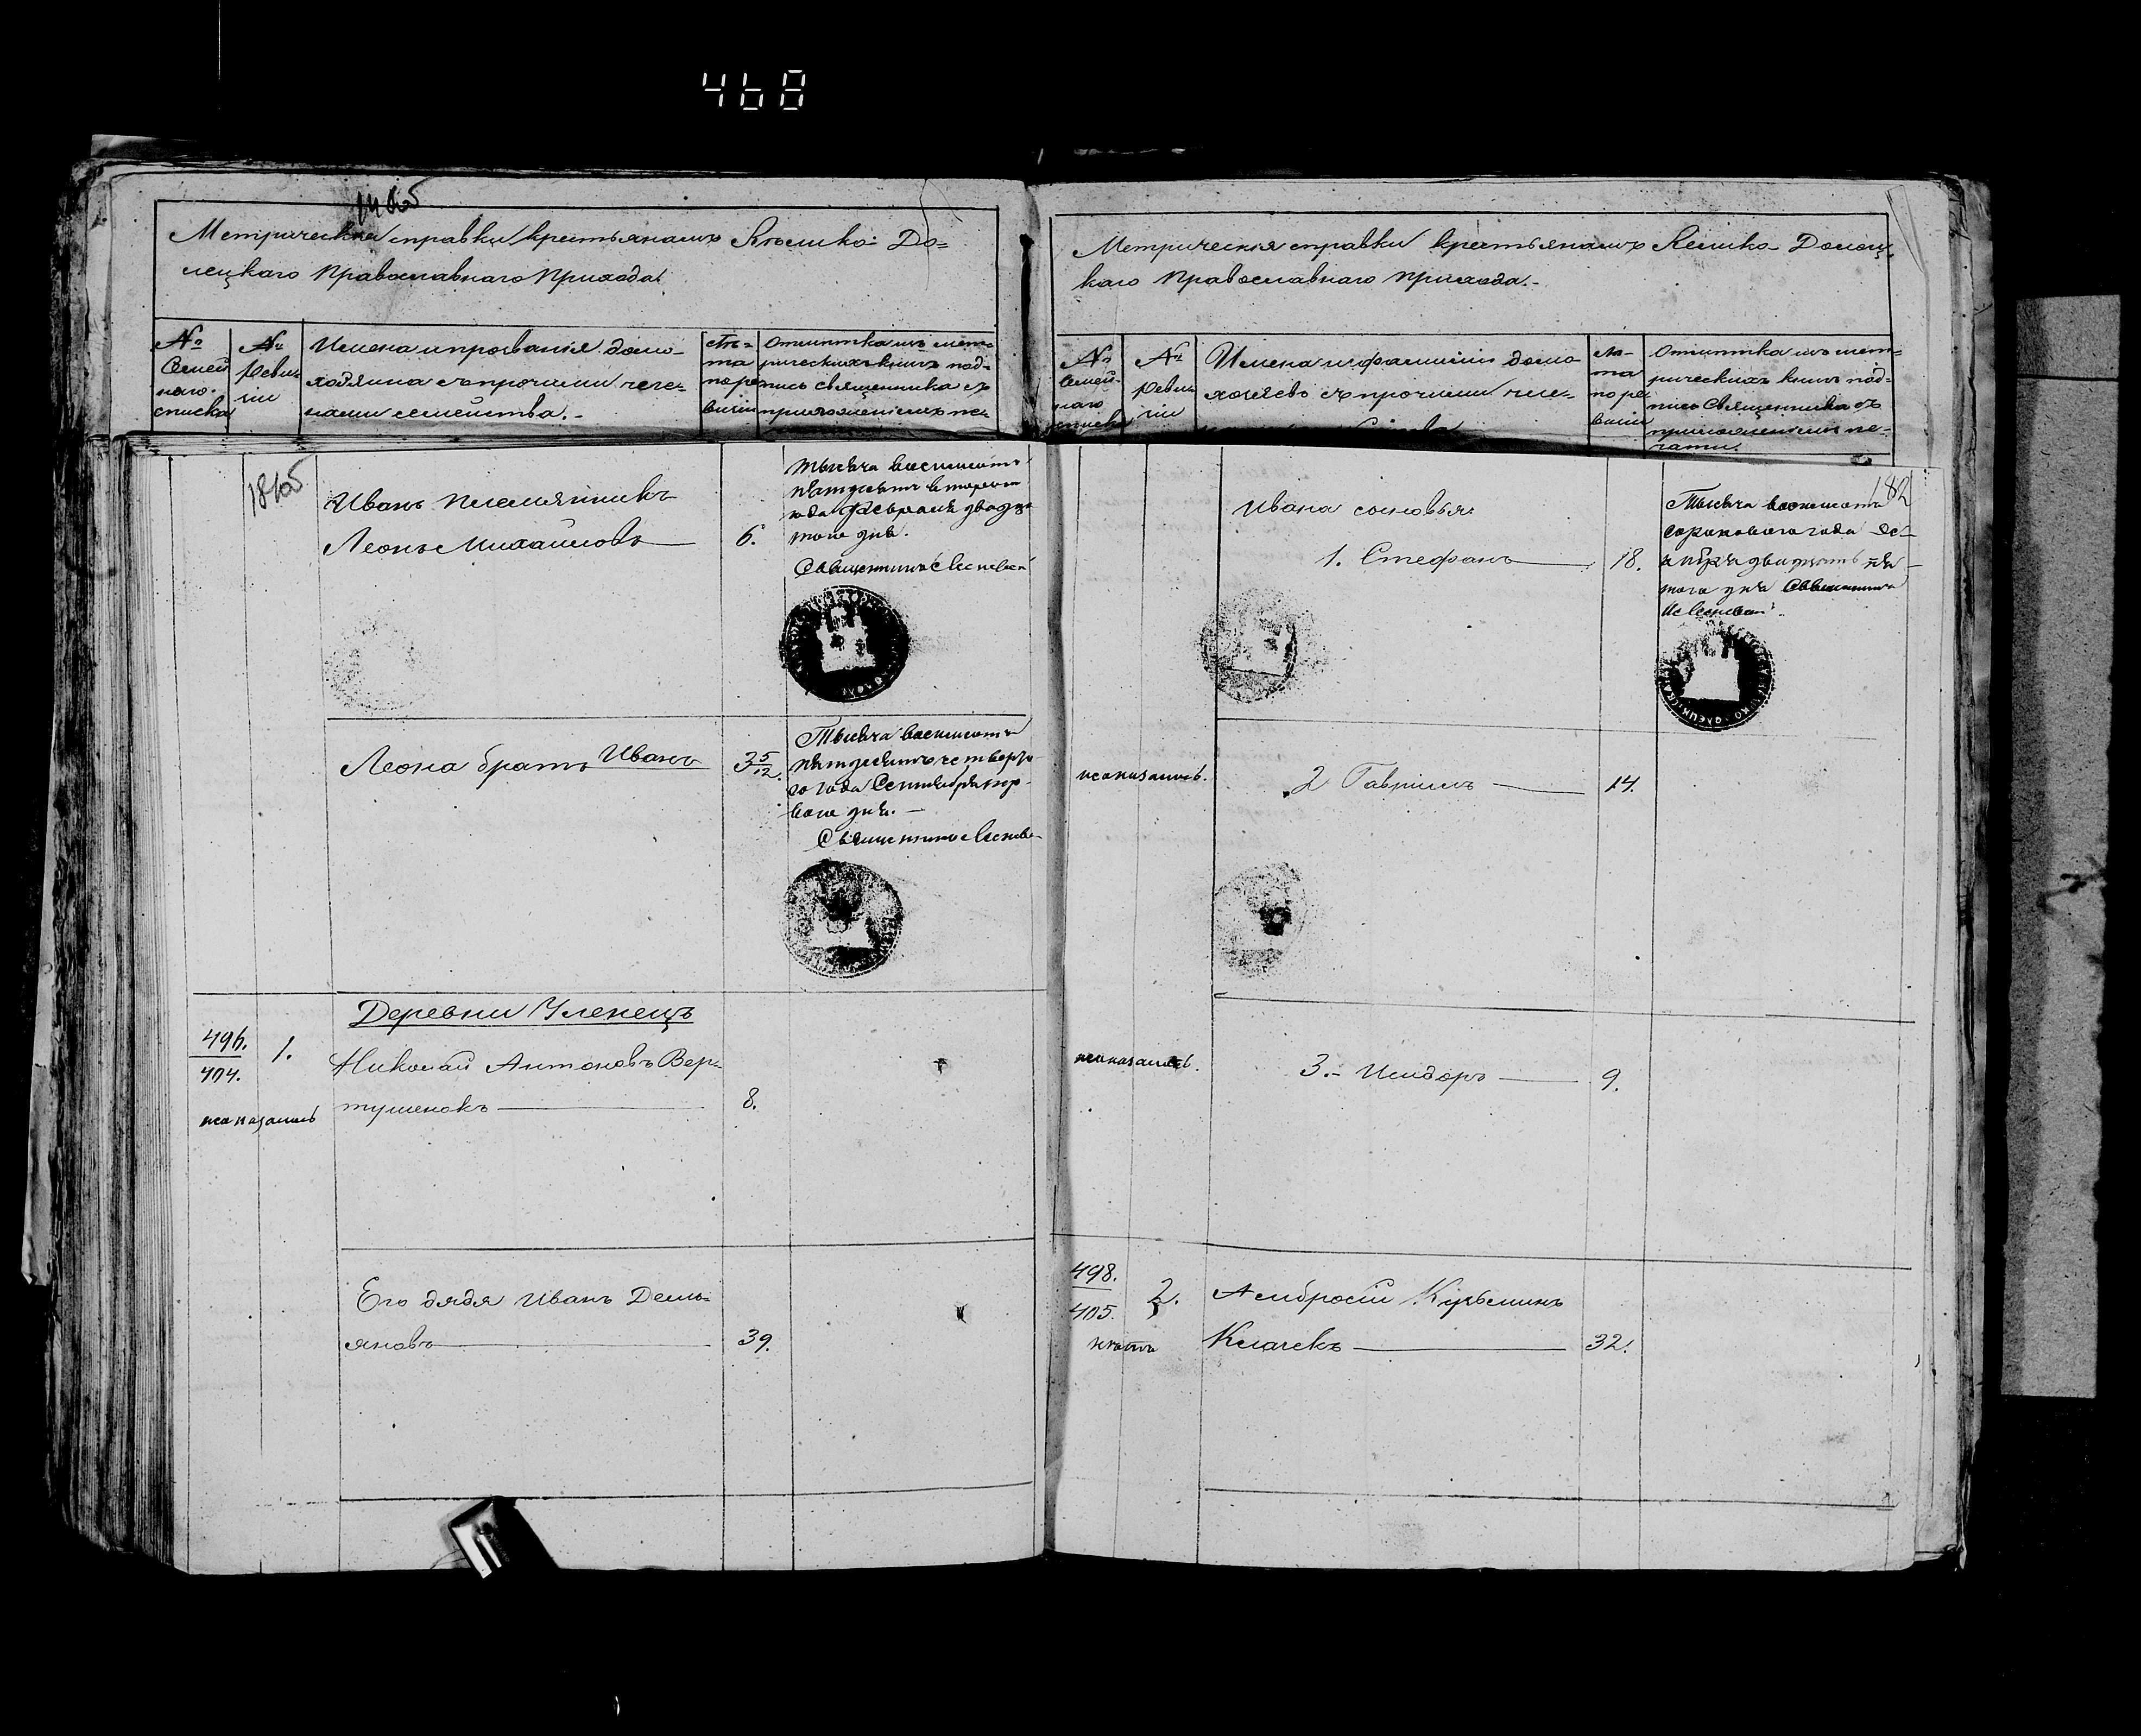 468
1465
Метрическія справки крестьянамъ Велико-До=
лецкаго Православнаго Прихода.
№
Семей
наго
списка
№
реви=
зіи
Имена и прозванія домо-
хозяина съ прочими чле-
нами семейства.-
Лѣ=
та
по ре
визіи
Отмѣтка изъ мет=
рическихъ книгъ под=
пись священника съ
приложеніемъ пе-
Иванъ племянникъ
Леонъ Михайловъ
6.
Тысяча восемьсотъ
пятьдесятъ втораго
года Февраля двадца
таго дня.
Священникъ
Леона братъ Иванъ
3 5/12.
Тысяча восемьсотъ
пятьдесятъ четверта-
го года Сентября пер-
ваго дня.-
Священникъ
Деревни Уленецъ
496.
404.
1.
Николай Антоновъ Вер-
тушенокъ
8.
неоказалось
Его дядя Иванъ Демь=
яновъ
39.
182
Метрическія справки крестьянамъ Велико-Долец-
каго Православнаго Прихода.-
№
Семей-
наго
списка
№
реви=
зіи
Имена и фамиліи домо-
хозяевъ съ прочими чле-
Лѣ-
та
по ре
визіи
Отмѣтка изъ мет=
рическихъ книгъ под=
пись Священника съ
приложеніемъ пе-
чати.
Ивана сыновья:
1. Стефанъ
18.
Тысяча восемьсотъ
сороковаго года Де-
кабря двадцать пя-
таго дня Священникъ
неоказалось.
2 Гавріилъ
14.
неоказалось.
3.- Исидоръ
9.
498.
405.
2.
Амбросій Кузьминъ
Клачекъ
32.